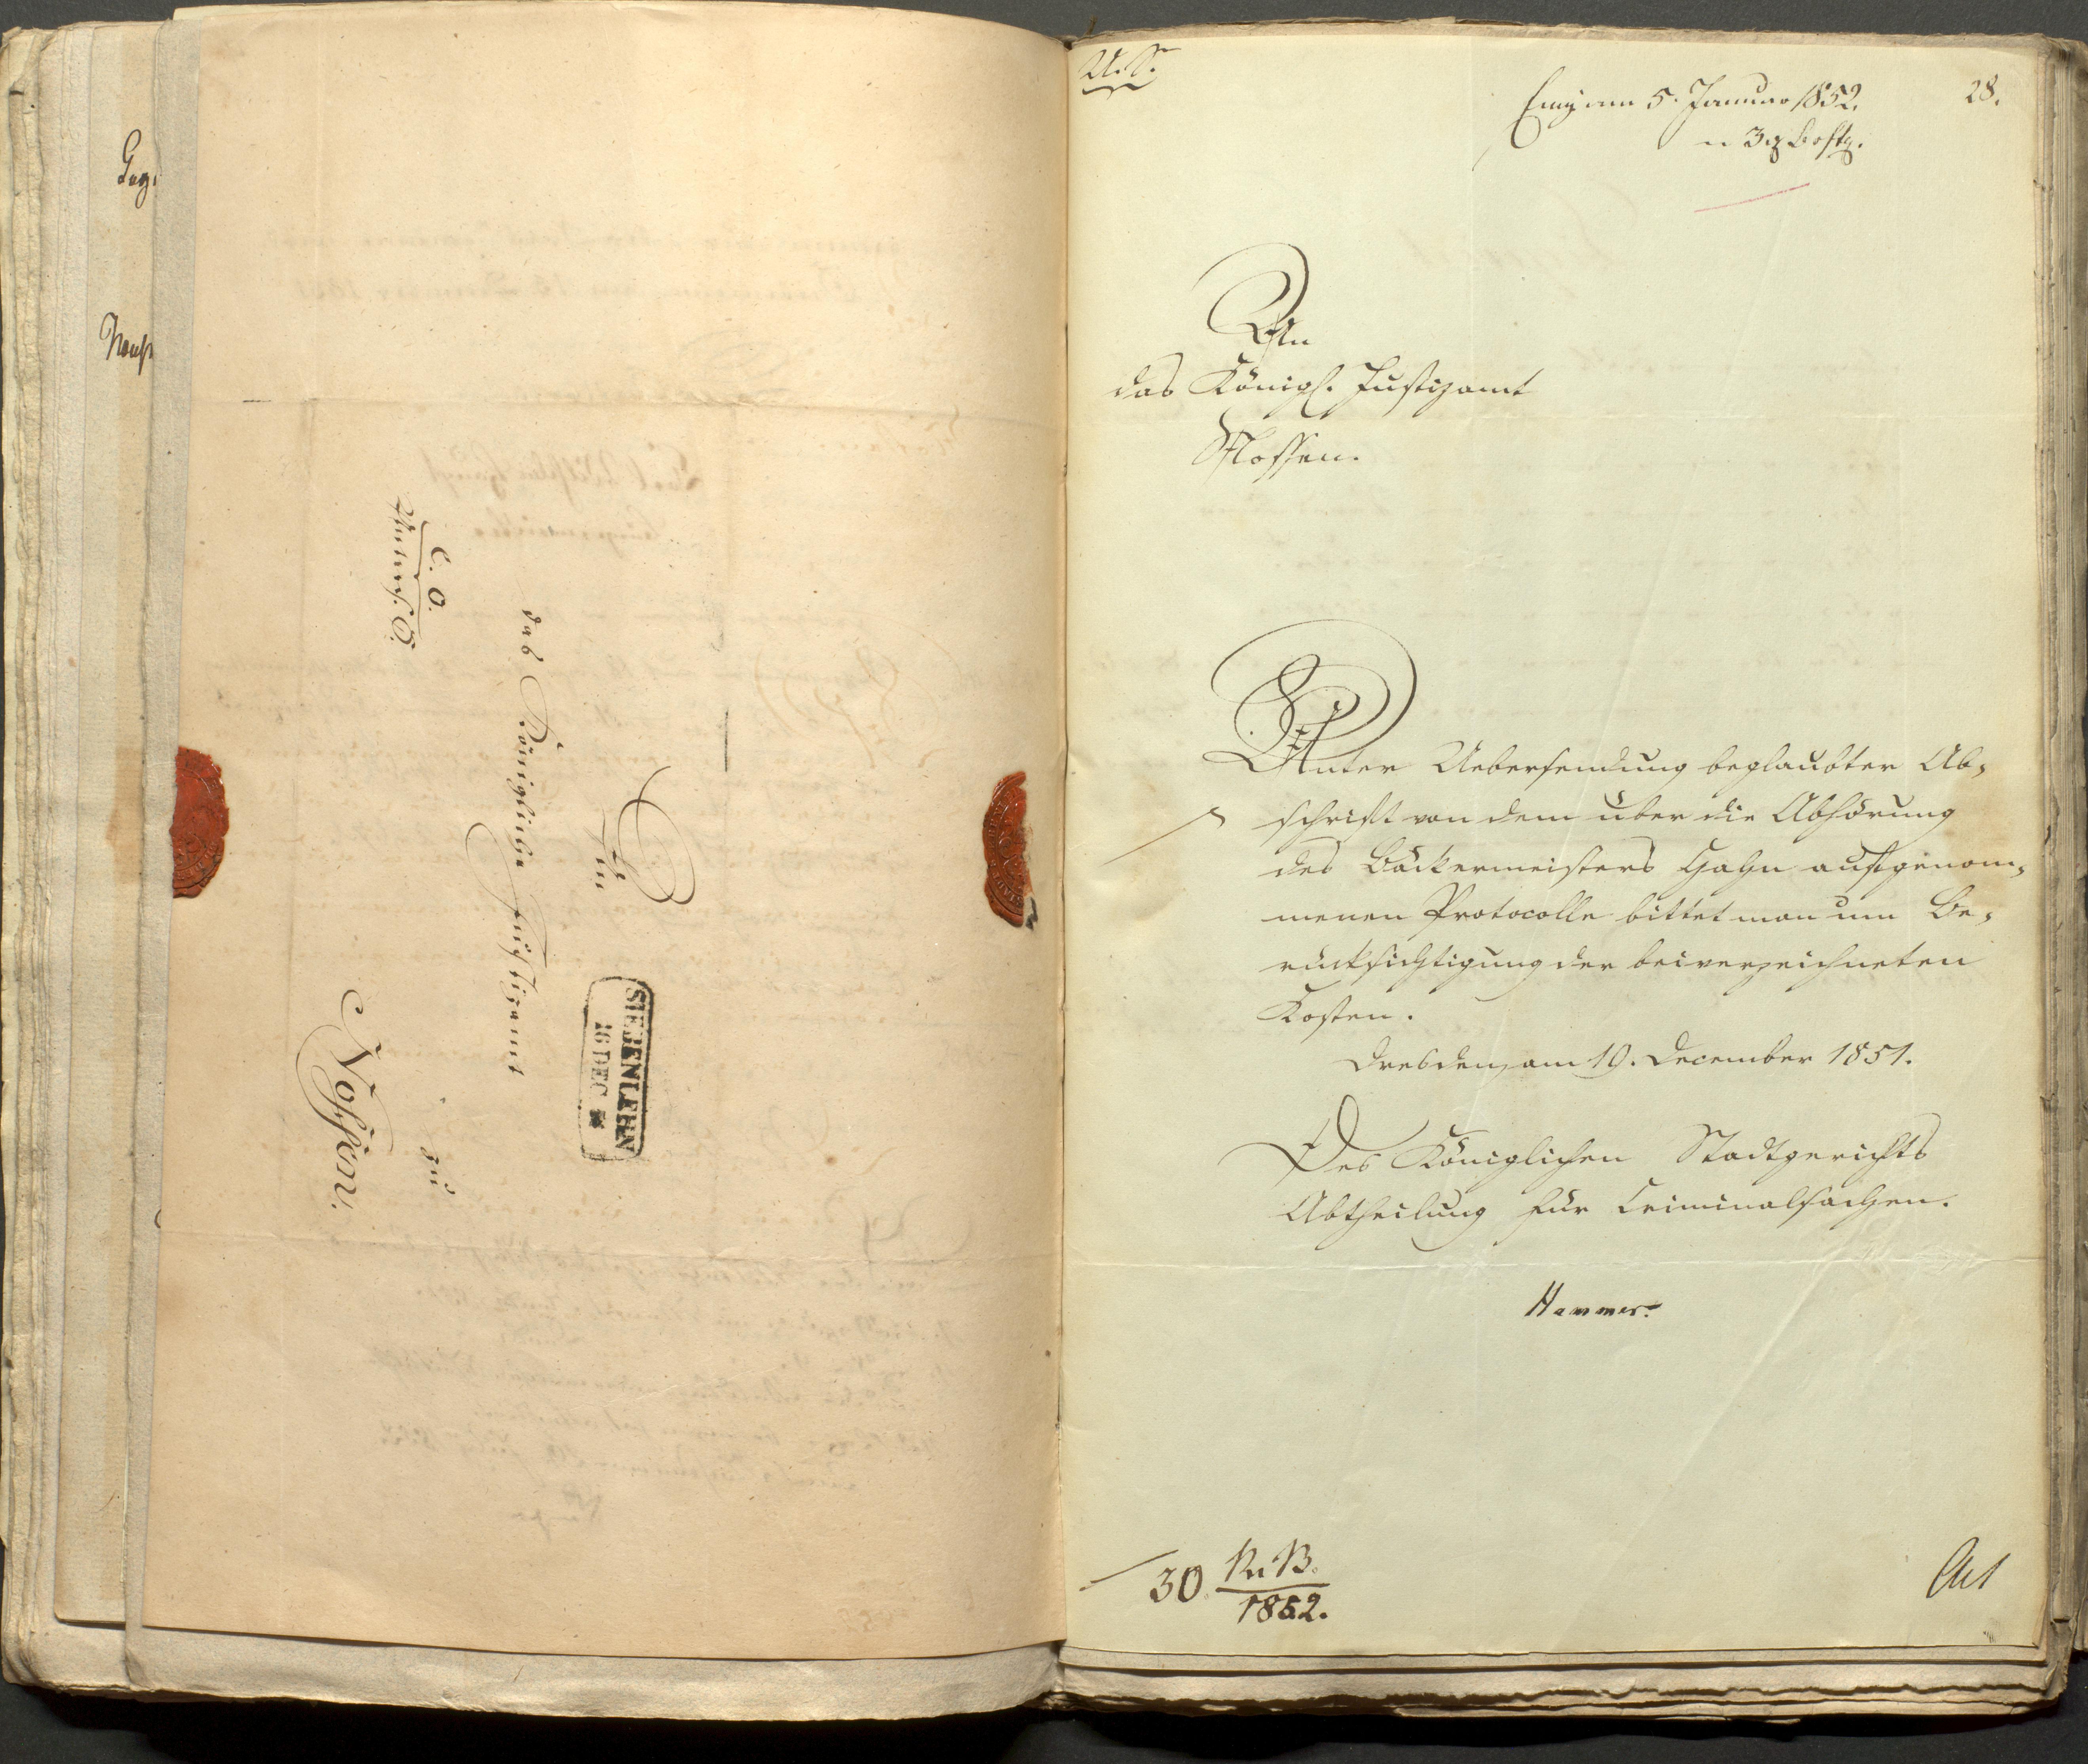 C. O.
An
das Königliche Justizamt
zu
Nossen.
SIEBENLEHN
16 DEC
28.
Eing. am 5. Januar 1852.
An
das Königl. Justizamt
Nossen.
Unter Uebersendung beglaubter Ab-
schrift von dem über die Abhörung
des Bäckermeisters Hahn aufgenom-
menen Protocolle bittet man um Be-
rücksichtigung der beiverzeichneten
Kosten.
Dresden, am 19. December 1851.
Des Königlichen Stadtgerichts
Abtheilung für Criminalsachen.
Hammer.
30. Rn B.
1852.